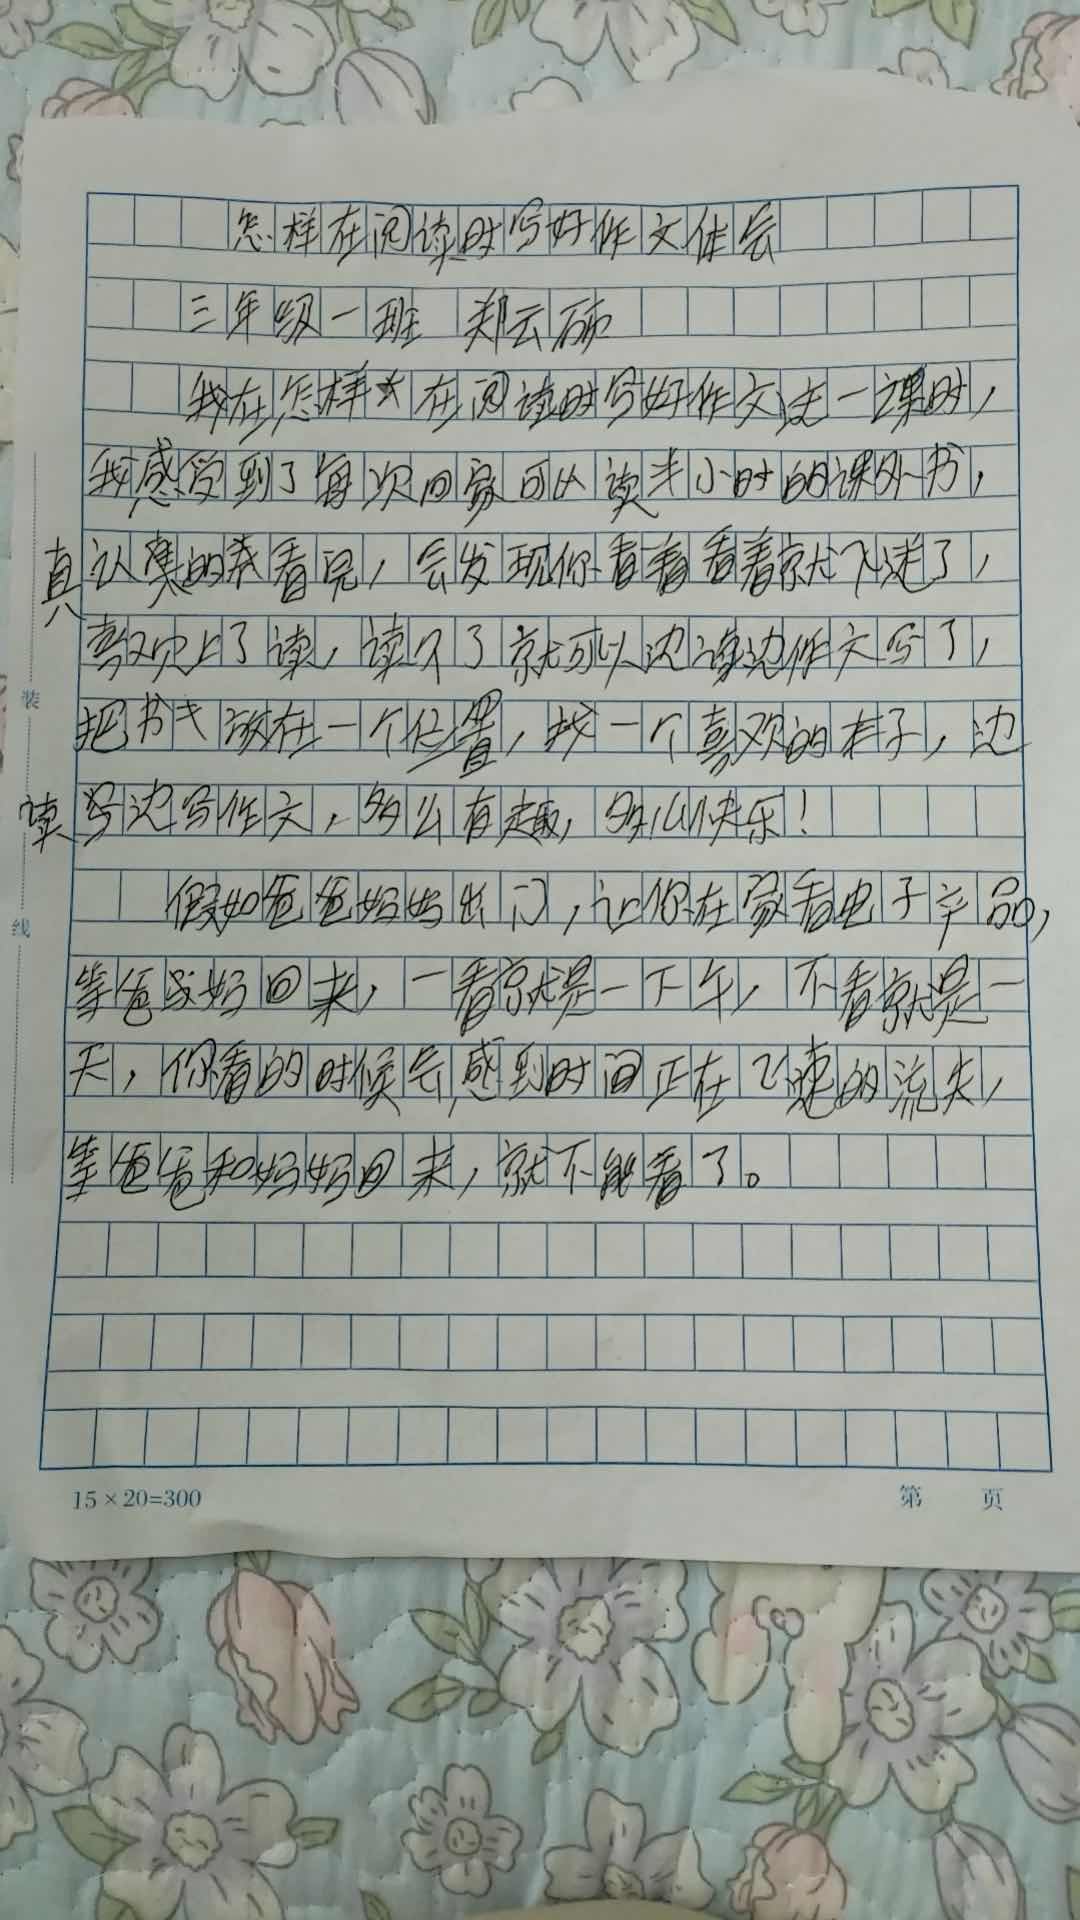 怎样在阅读时写好作文体会
三年级一班 郑云硕
我在怎样在阅读时写好作文这一课时，
我感受到了每次回家可以读半小时的课外书，
真
认真的看完，会发现你看着看着就飞迷了，
喜欢上了读，读不了就可以边读边作文写了，
把书放在一个位置，找一个喜欢的本子，边
读
写边写作文，多么有趣，多么快乐！
假如爸爸妈妈出门，让你在家看电子产品，
等爸妈回来，一看就是一下午，不看就是一
天，你看的时候会感到时间正在飞速的流失，
等爸爸和妈妈回来，就不能看了。
装
线
15×20=300
第 页